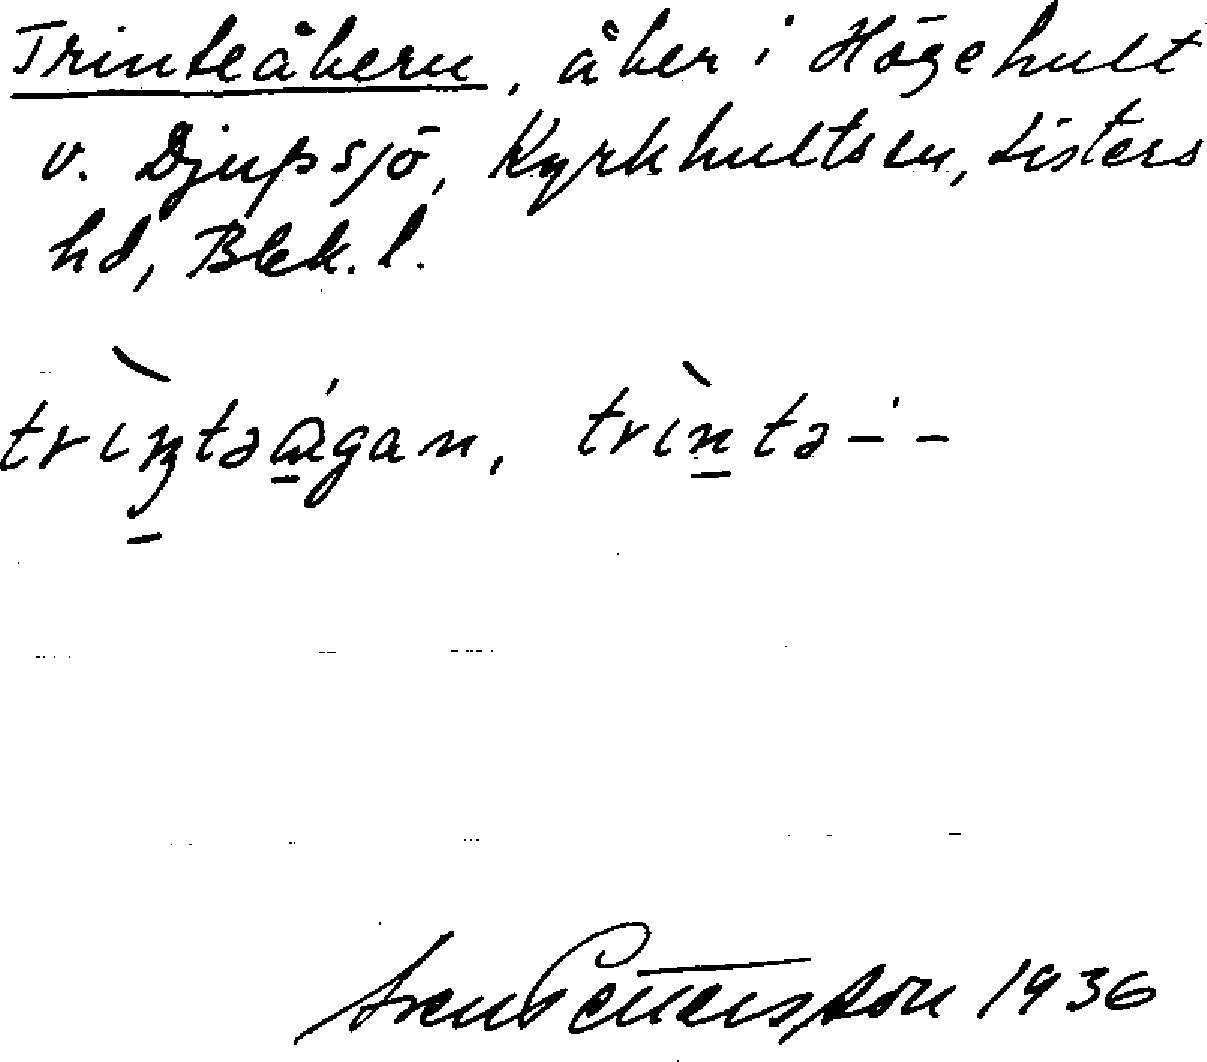 Trinteåkern, åker i Högehult
v. Djupsjö, Kyrkhults sn, Listers
hd, Blek. l.
trìn̠təågan, trìn̠tə-́-
Sven Pettersson 1936